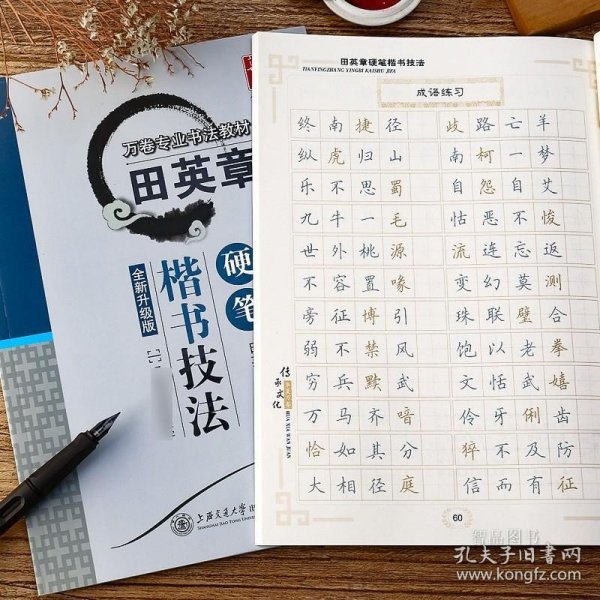 万卷专业书法教材
田英章
硬笔
楷书技法
全新升级版
上海交通大学出
SHANGHAI JIAO TONG UNIV
田英章硬笔楷书技法
TIANYINGZHANG YINGBI KAISHU JIFA
成语练习
终南捷径 歧路亡羊
纵虎归山 南柯一梦
乐不思蜀 自怨自艾
九牛一毛 怙恶不悛
世外桃源 流连忘返
不容置喙 变幻莫测
旁征博引 珠联璧合
弱不禁风 饱以老拳
穷兵黩武 文恬武嬉
万马齐喑 伶牙俐齿
恰如其分 猝不及防
大相径庭 信而有征
传承文化
HUA XIA WAN JUAN
60
智品图书
孔夫子旧书网
www.kongfz.com